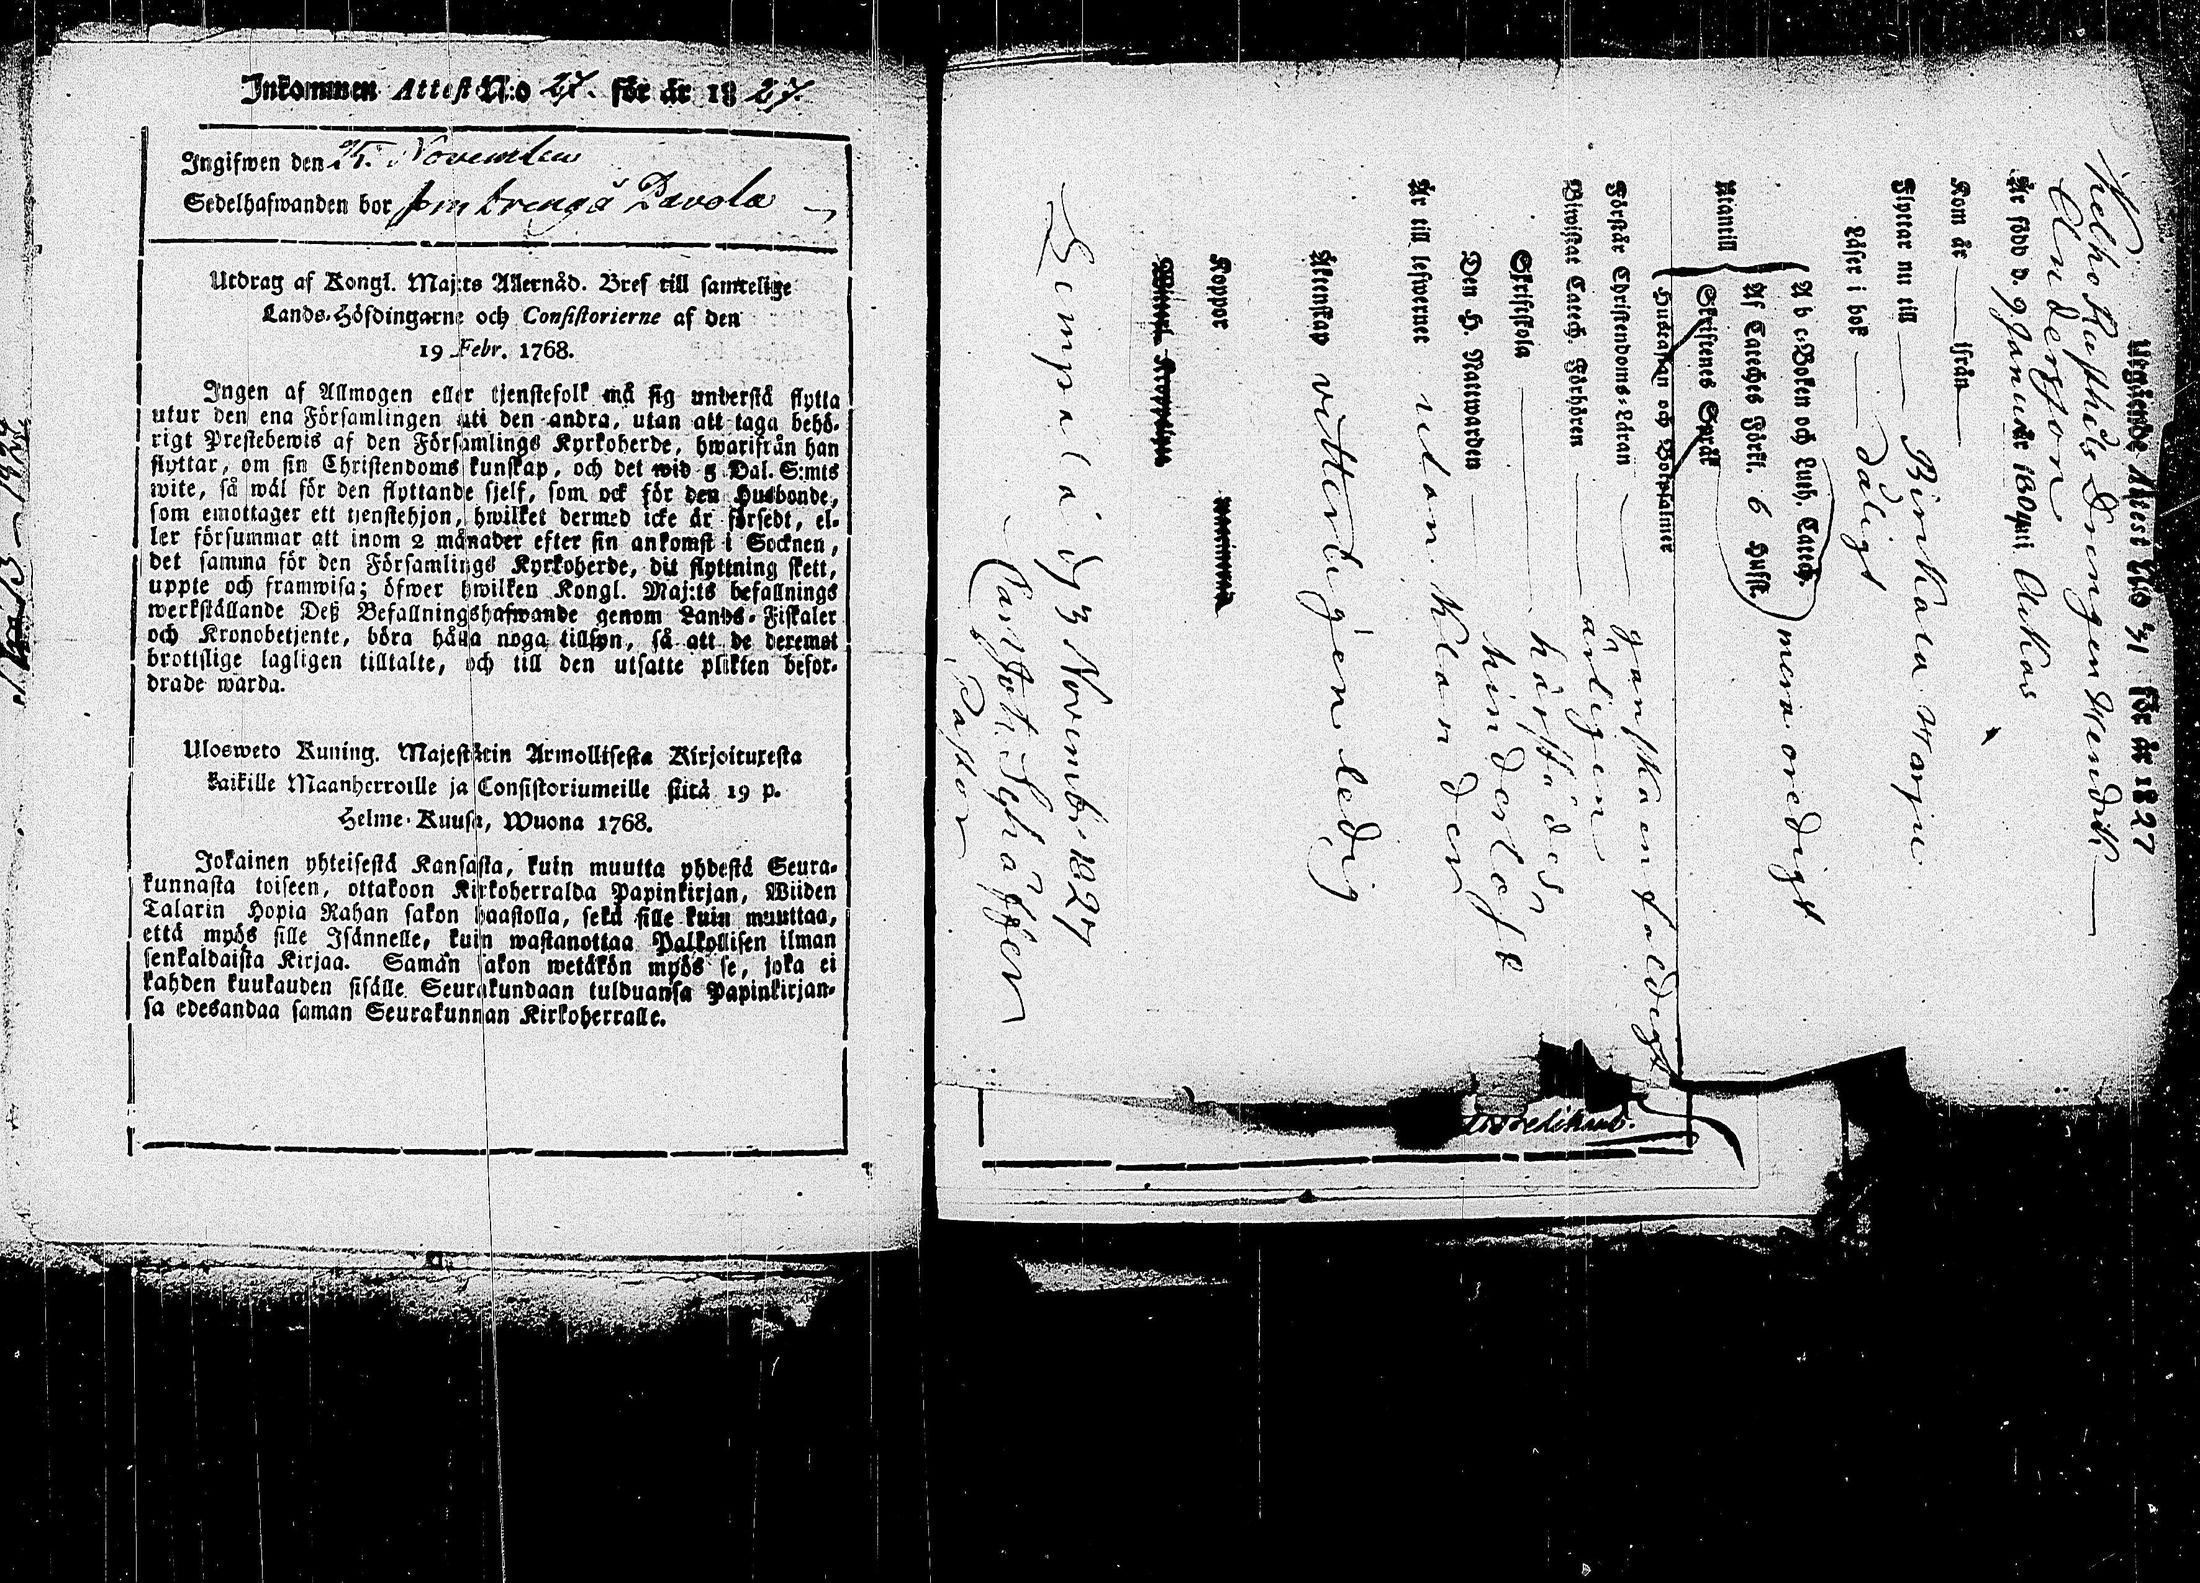 Inkommen Attest N:o 27. för år 1827.
Ingifwen den 25. November
Sedelhafwanden bor som dreng å Pavola
Utdrag af Kongl. Maj:ts Allernåd. Bref till samtelige
Lands-Höfdingarne och Consistorierne af den
19 Febr. 1768.
Ingen af Allmogen eller tjenstefolk må sig understå flytta
utur den ena Församlingen uti den andra, utan att taga behö-
rigt Prestebewis af den Församlings Kyrkoherde, hwarifrån han
flyttar, om sin Christendoms kunskap, och det wid 5 Dal. S:mts
wite, så wäl för den flyttande sjelf, som ock för den Husbonde,
som emottager ett tjenstehjon, hwilket dermed icke är försedt, el-
ler försummar att inom 2 månader efter sin ankomst i Socknen,
det samma för den Församlings Kyrkoherde, dit flyttning skett,
uppte och framwisa; öfwer hwilken Kongl. Maj:ts befallnings
werkställande Deß Befallningshafwande genom Lands-Fiskaler
och Kronobetjente, böra hålla noga tillsyn, så att de deremot
brottslige lagligen tilltalte, och till den utsatte plikten befor-
drade warda.
Ulosweto Kuning. Majestätin Armollisesta Kirjoituxesta
kaikille Maanherroille ja Consistoriumeille siitä 19 p.
Helme-Kuusa, Wuona 1768.
Jokainen yhteisestä Kansasta, kuin muutta yhdestä Seura-
kunnasta toiseen, ottakoon Kirkoherralda Papinkirjan, Wiiden
Talarin Hopia Rahan sakon haastolla, sekä sille kuin muuttaa,
että myös sille Isännelle, kuin wastanottaa Palkollisen ilman
senkaldaista Kirjaa. Samän sakon wetäkön myös se, joka ei
kahden kuukauden sisälle Seurakundaan tulduansa Papinkirjan-
sa edesandaa saman Seurakunnan Kirkoherralle.
Utgående Attest N:o 31 för år 1827
Kelho Rusthåls Drengen Hendrik
Andersson
Är född d. 9 Januar 1804 uti
Kom år ifrån
Flyttar nu till Birkala Harju
Läser i bok dåligt
Utantill
A b c-Boken och Luth. Catech.
Af Cateches Förkl. 6 Hufst.
Skriftenes Språk
Hustaflan och Botpsalmer
mera oredigt
Förstår Christendoms-Läran ganska enfaldigt
Biwistat Catech. Förhören årligen
Skriftskola
Den H. Nattwarden hinderlöst
Är till lefwernet utan klander
Äktenskap vitterligen ledig
Koppor
Lempälä d. 3 Novemb. 1827
Pastor